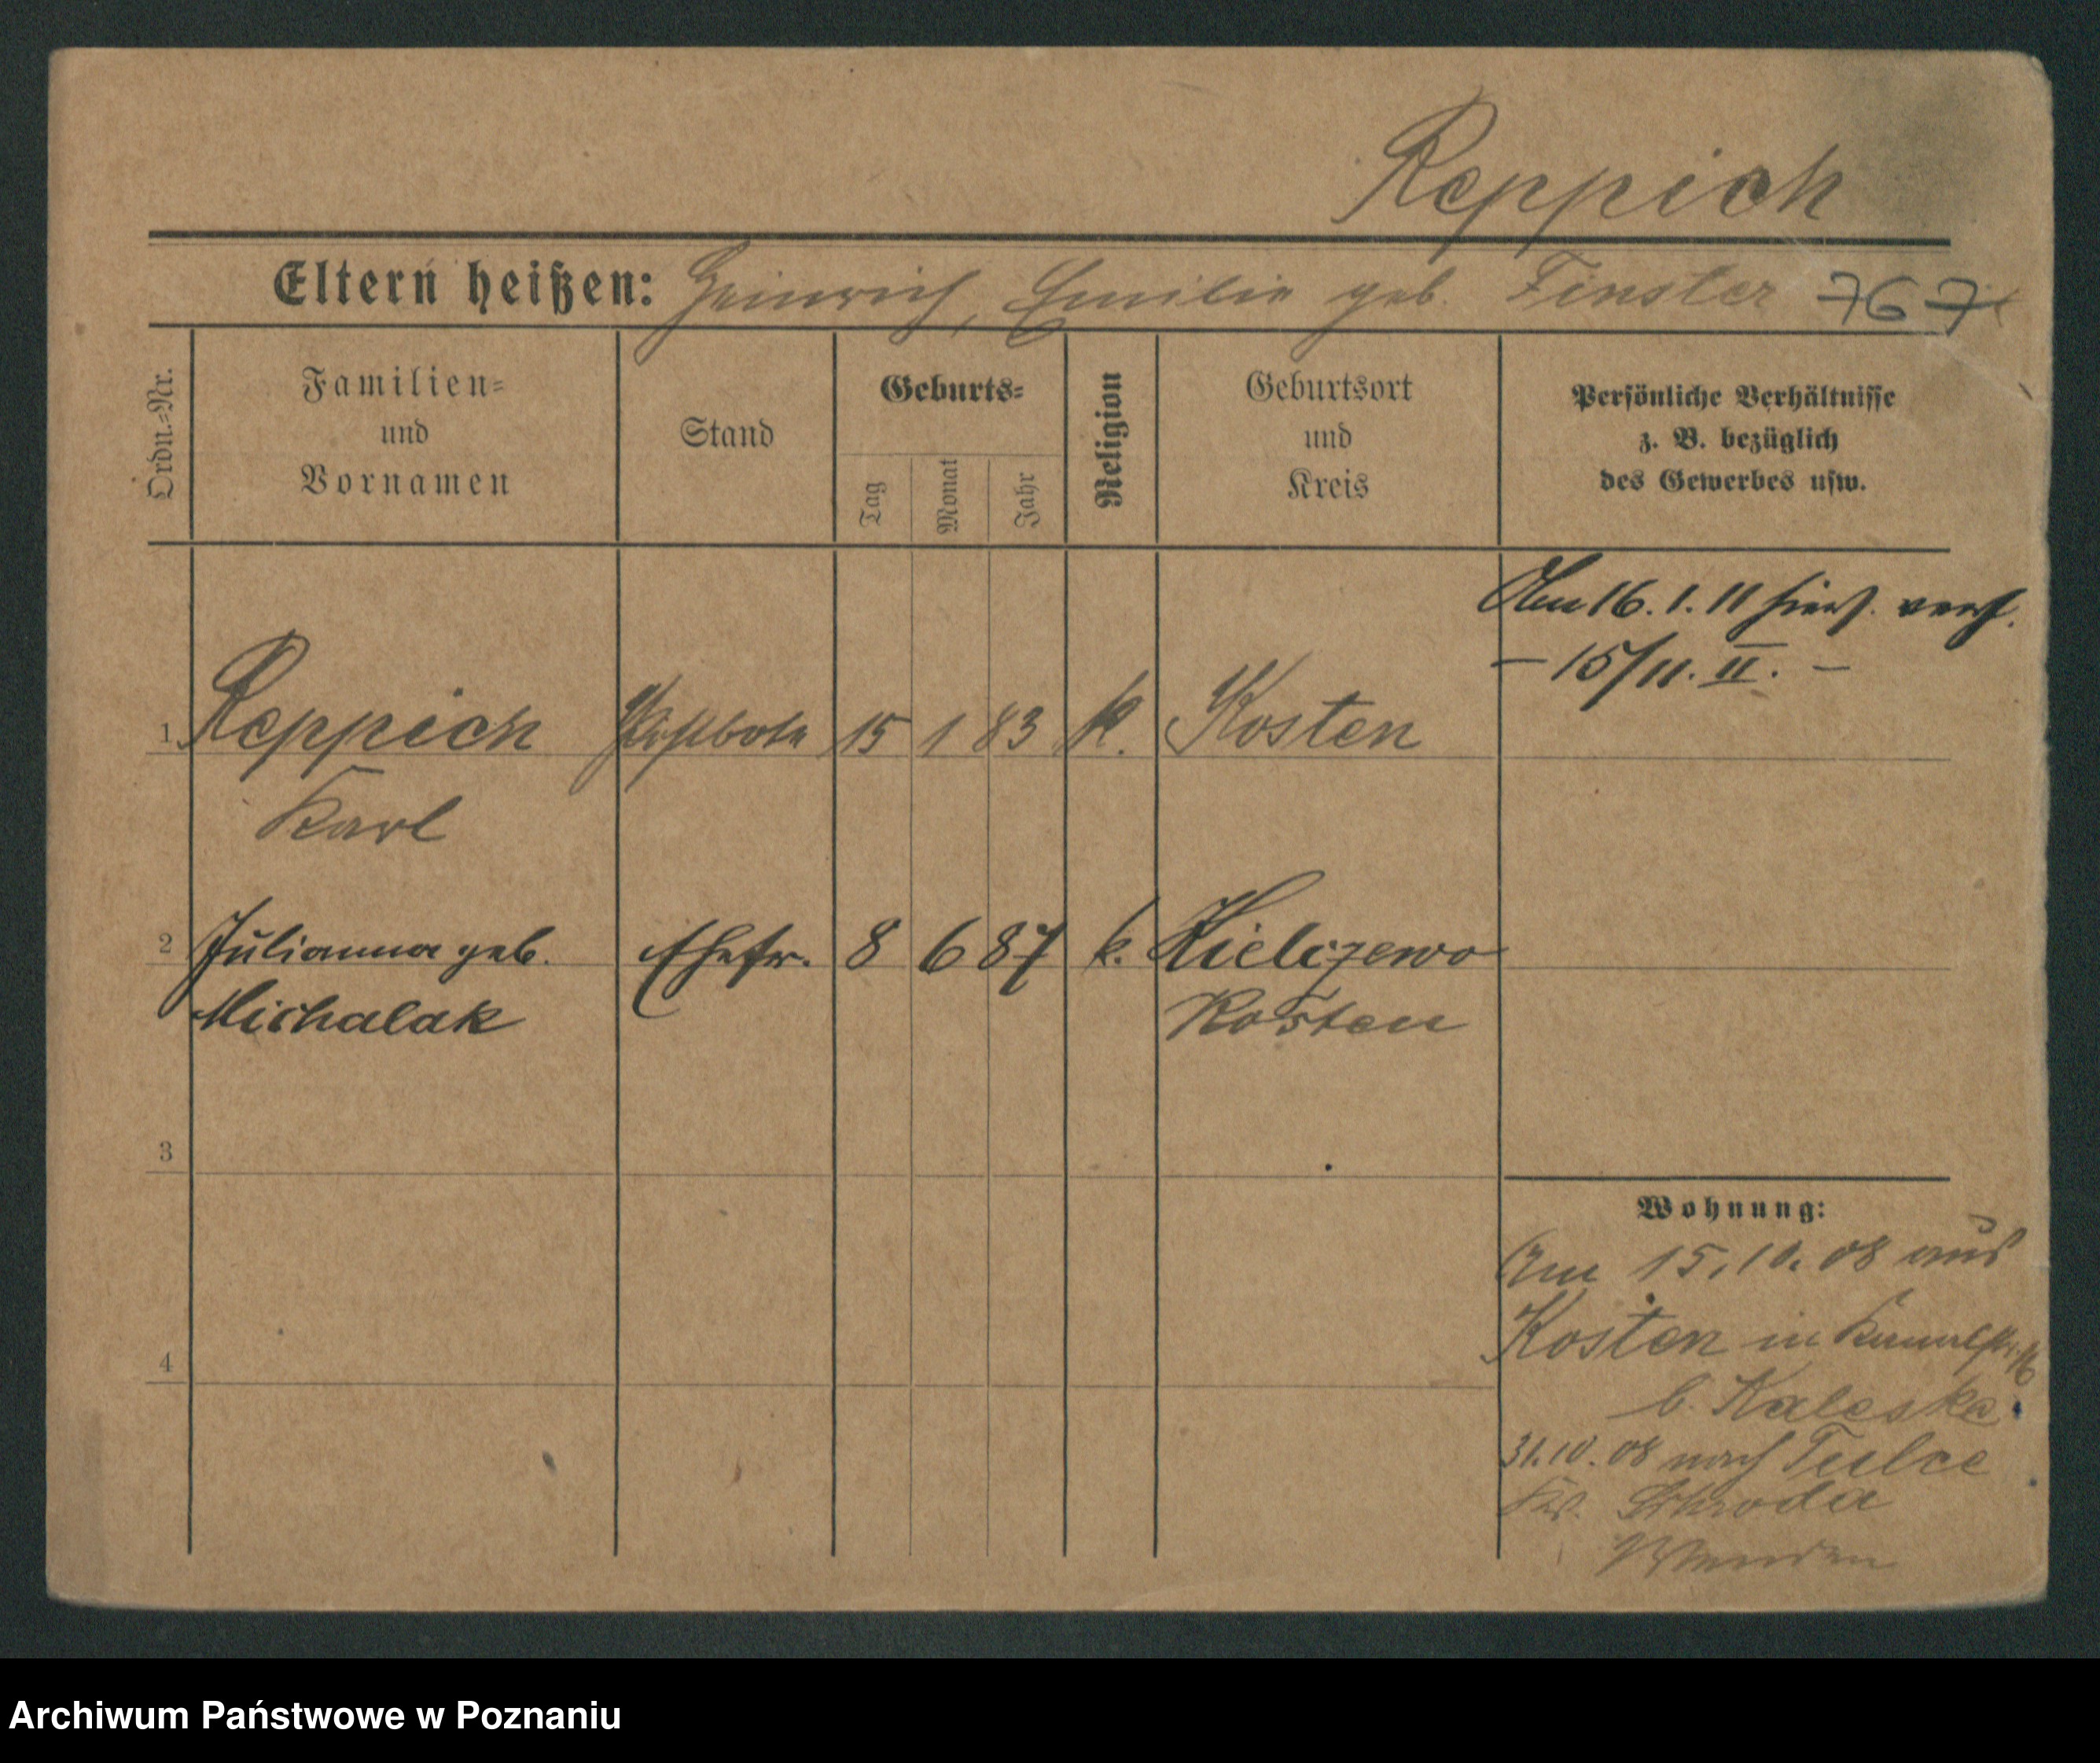 Reppich
Eltern heißen: Heinrich, Emilie geb. Finster 767
Ordn.=Nr.
Familien=
und
Vornamen
Stand
Geburts=
Tag
Monat
Jahr
Religion
Geburtsort
und
Kreis
Persönliche Verhältnisse
z. B. bezüglich
des Gewerbes usw.
Am 16. 1. 11 hiers. verh.
– 15/11. II. –
1 Reppich Postbote 15 1 83 K. Kosten
Karl
2 Julianna geb. Ehefr. 8 6 87 k. Kielczewo
Michalak Kosten
3
Wohnung:
Am 15. 10. 08 aus
Kosten in Kanalstr. 16
b. Kaleske
4
31. 10. 08 nach Tulce
Kr. Schroda
Archiwum Państwowe w Poznaniu